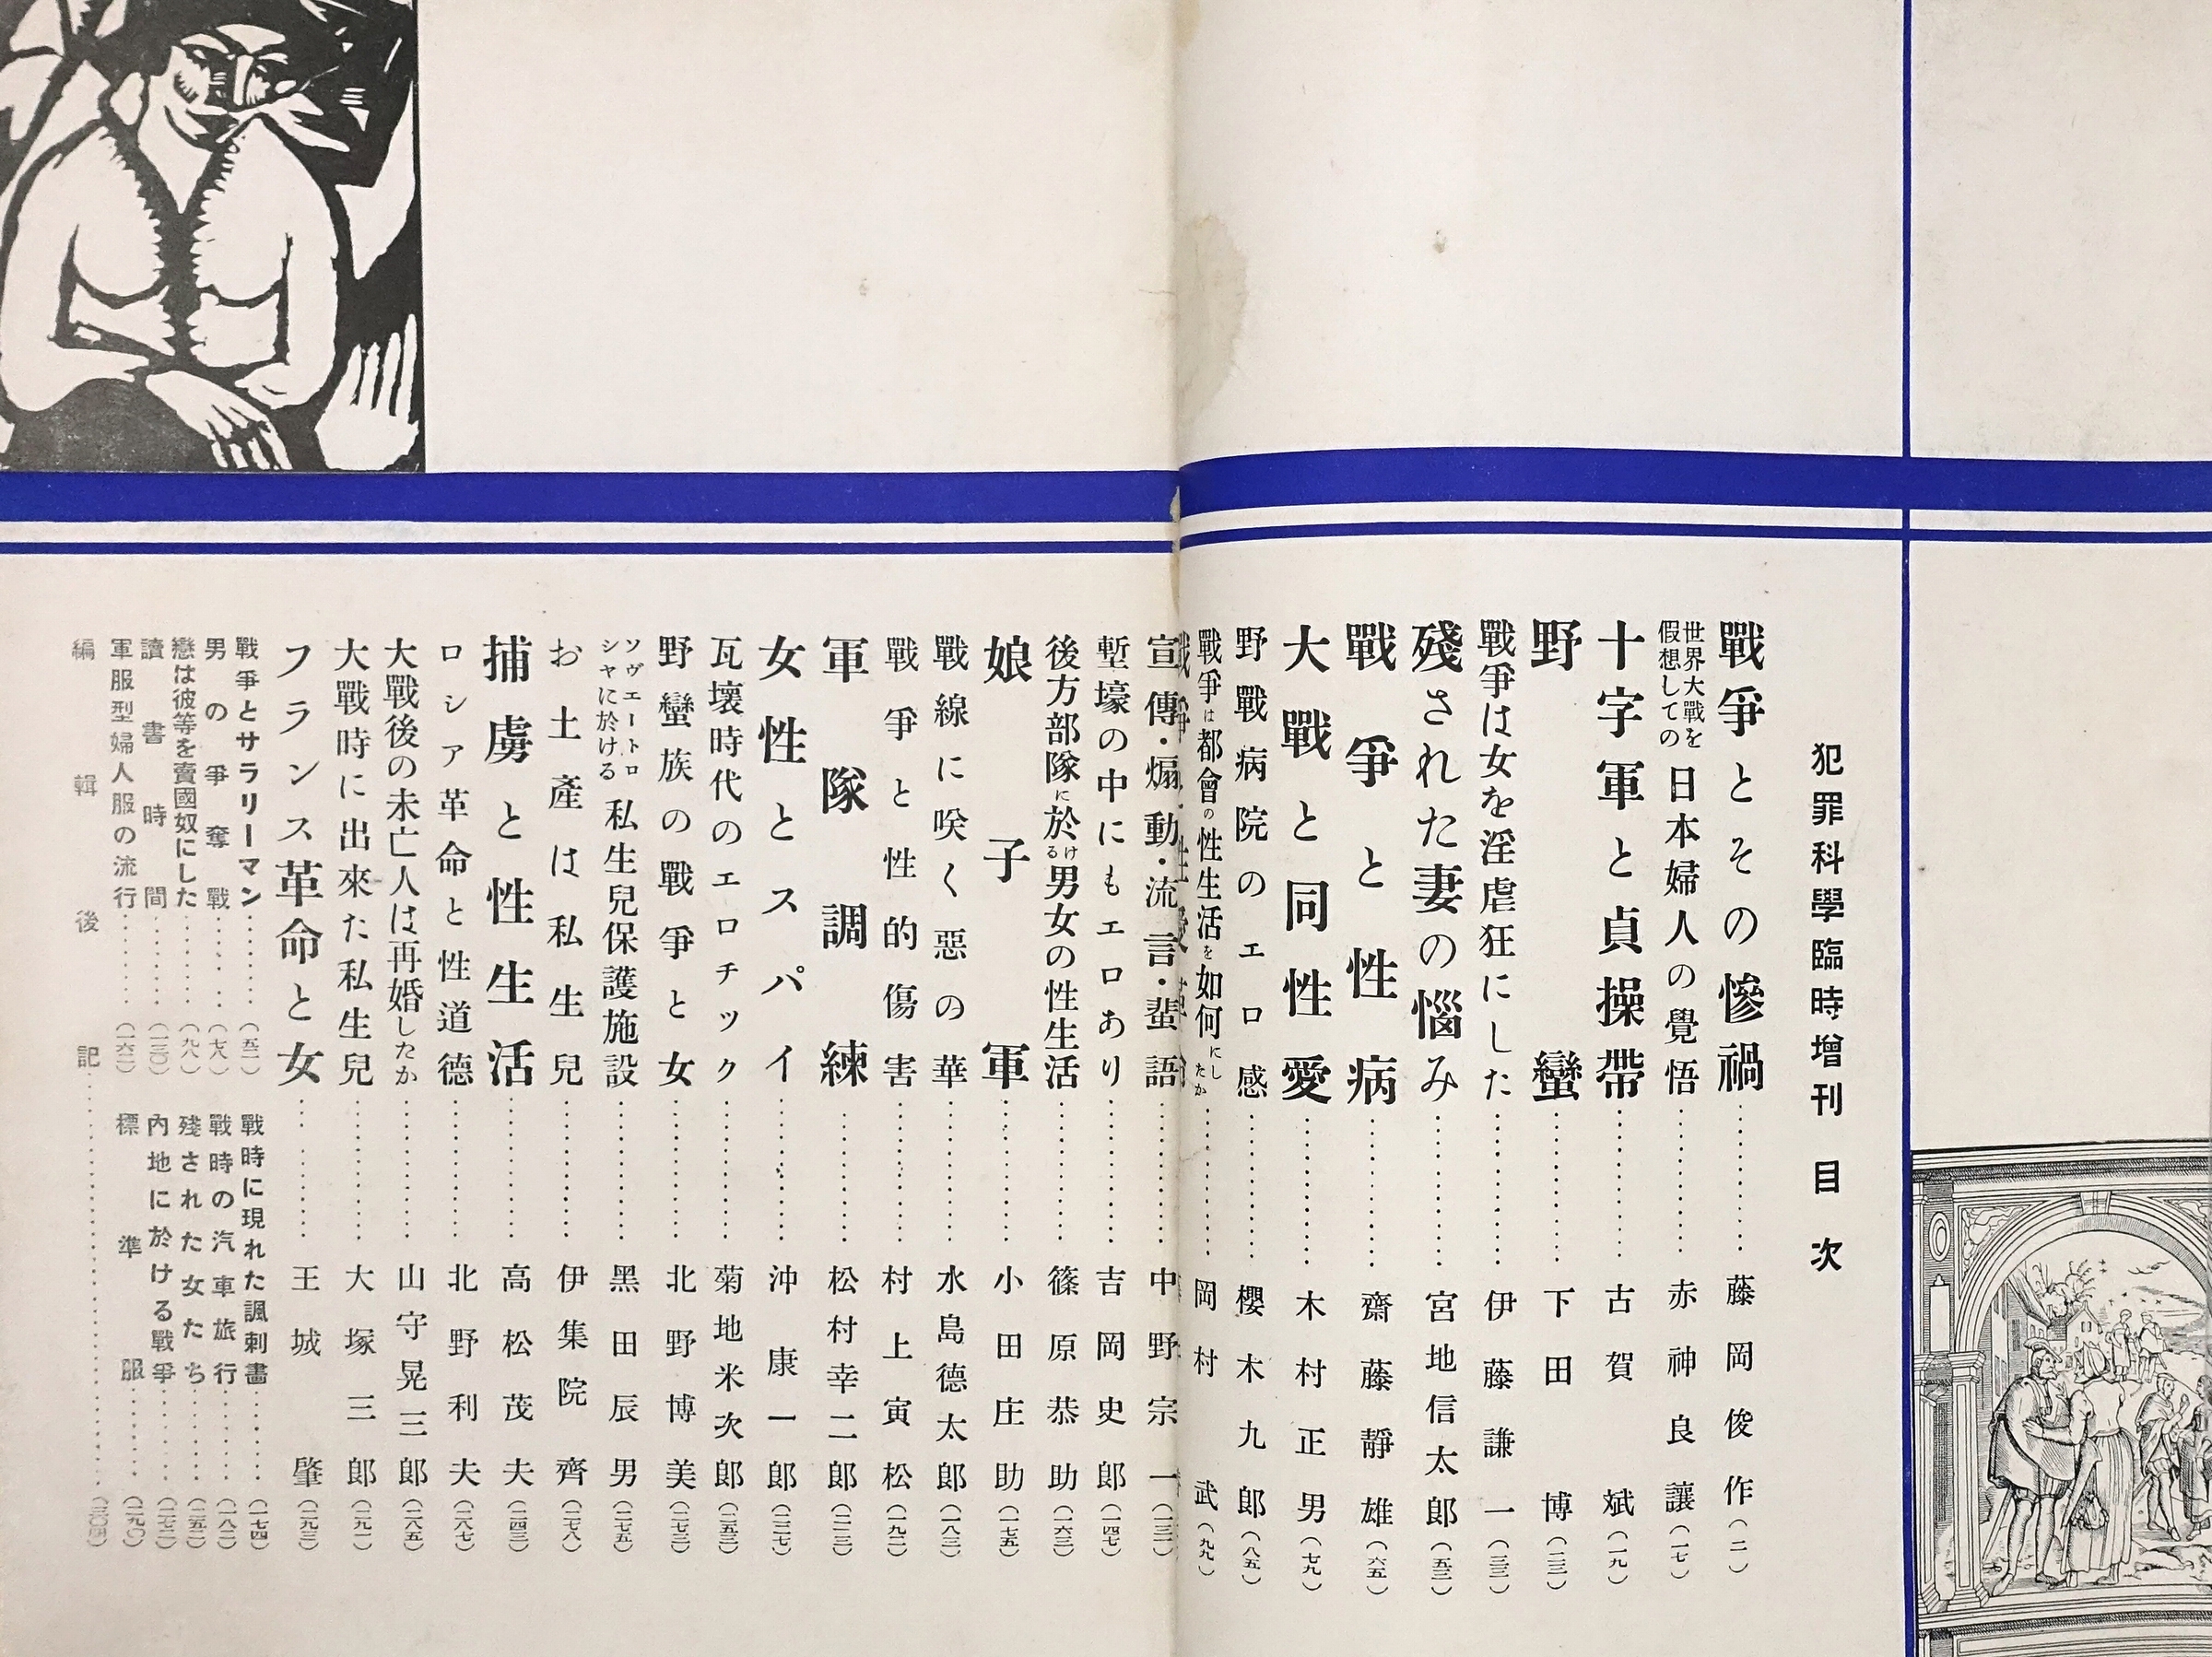 犯罪科學臨時增刊 目次
戰爭とその慘禍………藤岡俊作(二)
世界大戰を假想しての 日本婦人の覺悟………赤神良讓(一七)
十字軍と貞操帶………古賀斌(一九)
野蠻………下田博(二三)
戰爭は女を淫虐狂にした………伊藤謙一(三三)
殘された妻の惱み………宮地信太郎(五三)
戰爭と性病………齋藤靜雄(六五)
大戰と同性愛………木村正男(七九)
野戰病院のエロ感………櫻木九郎(八五)
戰爭は都會の性生活を如何にしたか………岡村武(九九)
宣傳・煽動・流言・蜚語………中野宗一(一三一)
塹壕の中にもエロあり………吉岡史郎(一四七)
後方部隊に於ける男女の性生活………篠原恭助(一六三)
娘子軍………小田庄助(一七五)
戰線に咲く惡の華………水島德太郎(一八三)
戰爭と性的傷害………村上寅松(一九二)
軍隊調練………松村幸二郎
女性とスパイ………沖康一郎(二二七)
瓦壞時代のエロチック………菊地米次郎(二五三)
野蠻族の戰爭と女………北野博美(二七三)
ソヴエート・ロシヤに於ける 私生兒保護施設………黑田辰男(二七五)
お土產は私生兒………伊集院齊(二七八)
捕虜と性生活………高松茂夫(二四三)
ロシア革命と性道德………北野利夫(二八七)
大戰後の未亡人は再婚したか………山守晃三郎(二八五)
大戰時に出來た私生兒………大塚三郎(二九一)
フランス革命と女………王城肇(二九三)
戰爭とサラリーマン………(五二)
男の爭奪戰………(七八)
戀は彼等を賣國奴にした………(九八)
讀書時間………(一三〇)
軍服型婦人服の流行………(一六二)
戰時に現れた諷刺畫………(一七四)
戰時の汽車旅行………(一八二)
殘された女たち………(二五二)
內地に於ける戰爭………(二七二)
標準服………(二九〇)
編輯後記………(三〇四)